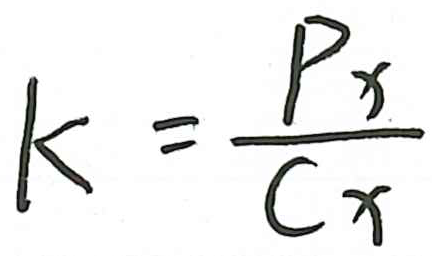 K = Px / Cx